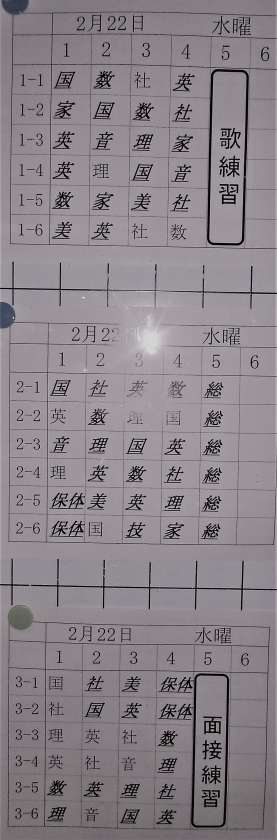 2月22日 水曜
1 2 3 4 5 6
1-1 国 数 社 英
1-2 家 国 数 社
1-3 英 音 理 家
1-4 英 理 国 音
1-5 数 家 美 社
1-6 美 英 社 数
歌練習
2月22 水曜
1 2 3 4 5 6
2-1 国 社 英 数 総
2-2 英 数 理 国 総
2-3 音 理 国 英 総
2-4 理 英 数 社 総
2-5 保体 美 英 理 総
2-6 保体 国 技 家 総
2月22日 水曜
1 2 3 4 5 6
3-1 国 社 美 保体
3-2 社 国 英 保体
3-3 理 英 社 数
3-4 英 社 音 理
3-5 数 英 理 社
3-6 理 音 国 英
面接練習